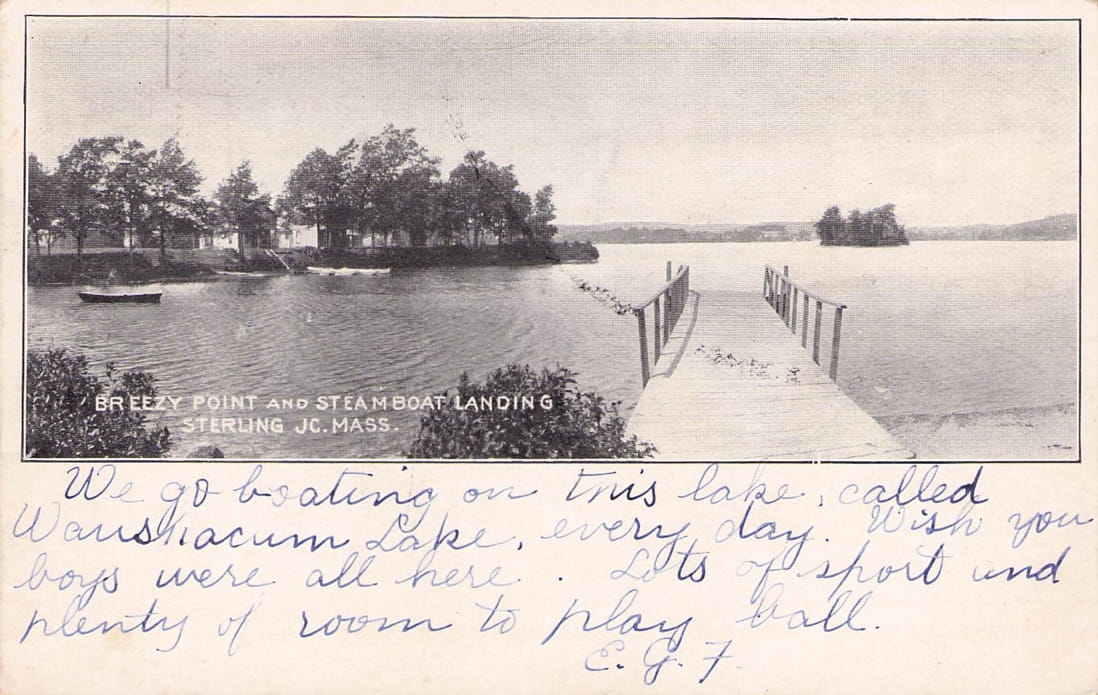 BREEZY POINT AND STEAMBOAT LANDING
STERLING JC. MASS.
We go boating on this lake, called
Waushacum Lake, every day. Wish you
boys were all here. Lots of sport and
plenty of room to play ball.
E. G. F.